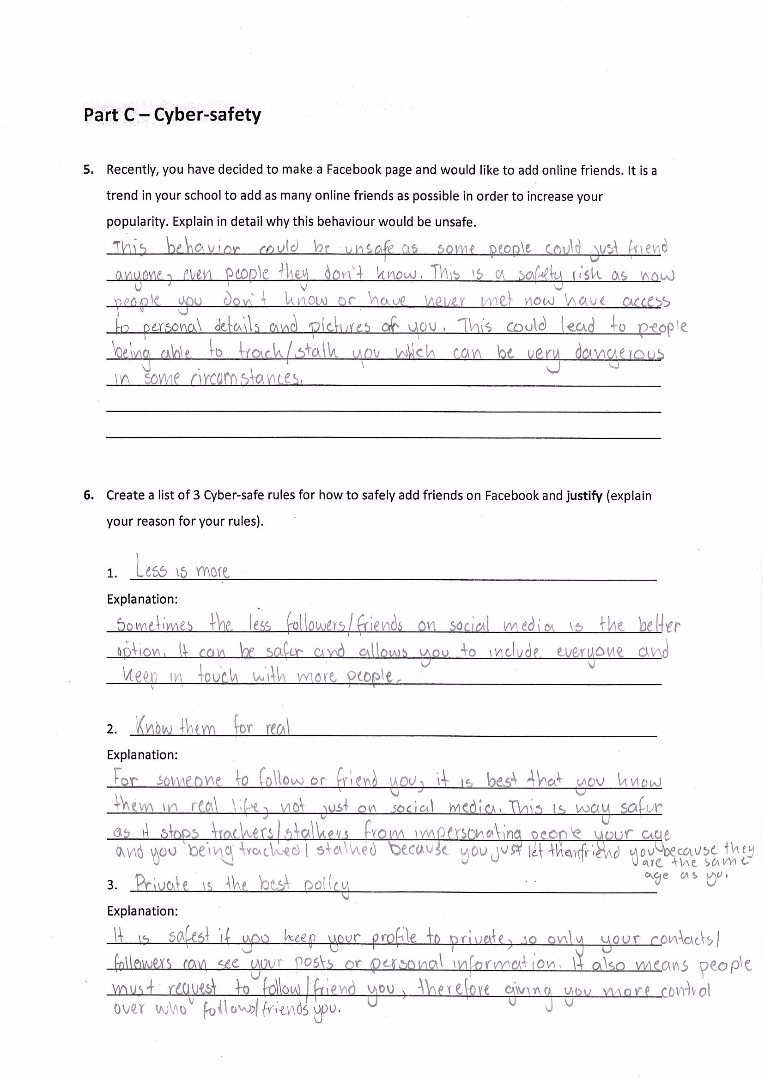 Part C – Cyber-safety
5. Recently, you have decided to make a Facebook page and would like to add online friends. It is a
trend in your school to add as many online friends as possible in order to increase your
popularity. Explain in detail why this behaviour would be unsafe.
This behavior could be unsafe as some people could just friend
anyone, even people they don't know. This is a safety risk as now
people you don't know or have never met now have access
to personal details and pictures of you. This could lead to people
being able to track/stalk you which can be very dangerous
in some circumstances.
6. Create a list of 3 Cyber-safe rules for how to safely add friends on Facebook and justify (explain
your reason for your rules).
1. Less is more
Explanation:
Sometimes the less followers/friends on social media is the better
option. It can be safer and allows you to include everyone and
keep in touch with more people.
2. Know them for real
Explanation:
For someone to follow or friend you, it is best that you know
them in real life, not just on social media. This is way safer
as it stops trackers/stalkers from impersonating people your age
and you being tracked/stalked because you just let them friend you because they
are the same
age as you.
3. Private is the best policy
Explanation:
It is safest if you keep your profile to private, so only your contacts/
followers can see your posts or personal information. It also means people
must request to follow/friend you, therefore giving you more control
over who follow/friends you.